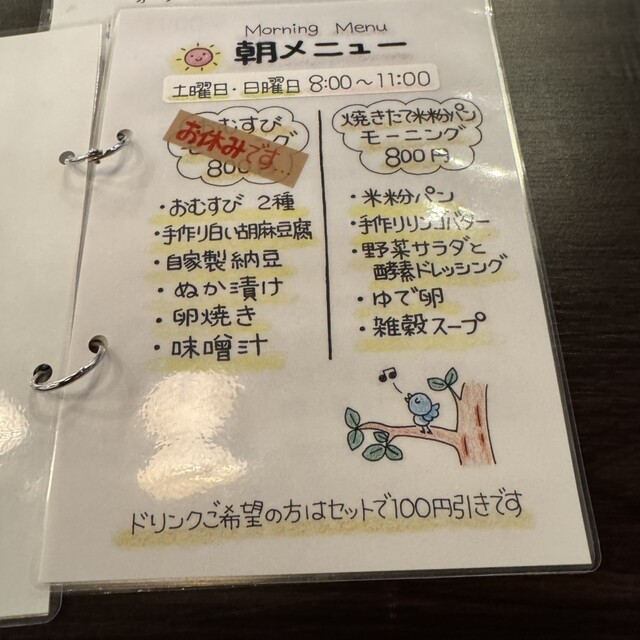 Morning Menu
朝メニュー
土曜日・日曜日 8:00〜11:00
むすび
お休みです…
グ
800
・おむすび 2種
・手作り白い胡麻豆腐
・自家製納豆
・ぬか漬け
・卵焼き
・味噌汁
焼きたて米粉パン
モーニング
800円
・米粉パン
・手作りリンゴバター
・野菜サラダと
酵素ドレッシング
・ゆで卵
・雑穀スープ
ドリンクご希望の方はセットで100円引きです